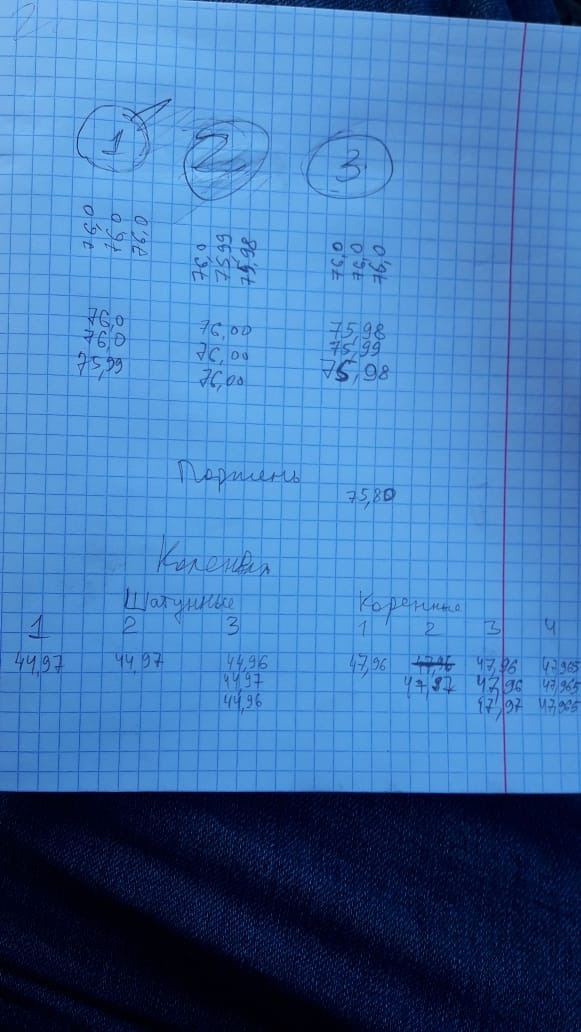 1 2 3
76,0 76,0 76,0 76,0 75,99 75,98 76,0 76,0 76,0
76,0 76,00 75,98
76,0 76,00 75,99
75,99 76,00 75,98
Поршень
75,80
Коленвал
Шатунные Коренные
1 2 3 1 2 3 4
44,97 44,97 44,96 47,96 47,96 47,96 47,965
44,97 47,97 47,96 47,965
44,96 47,97 47,965